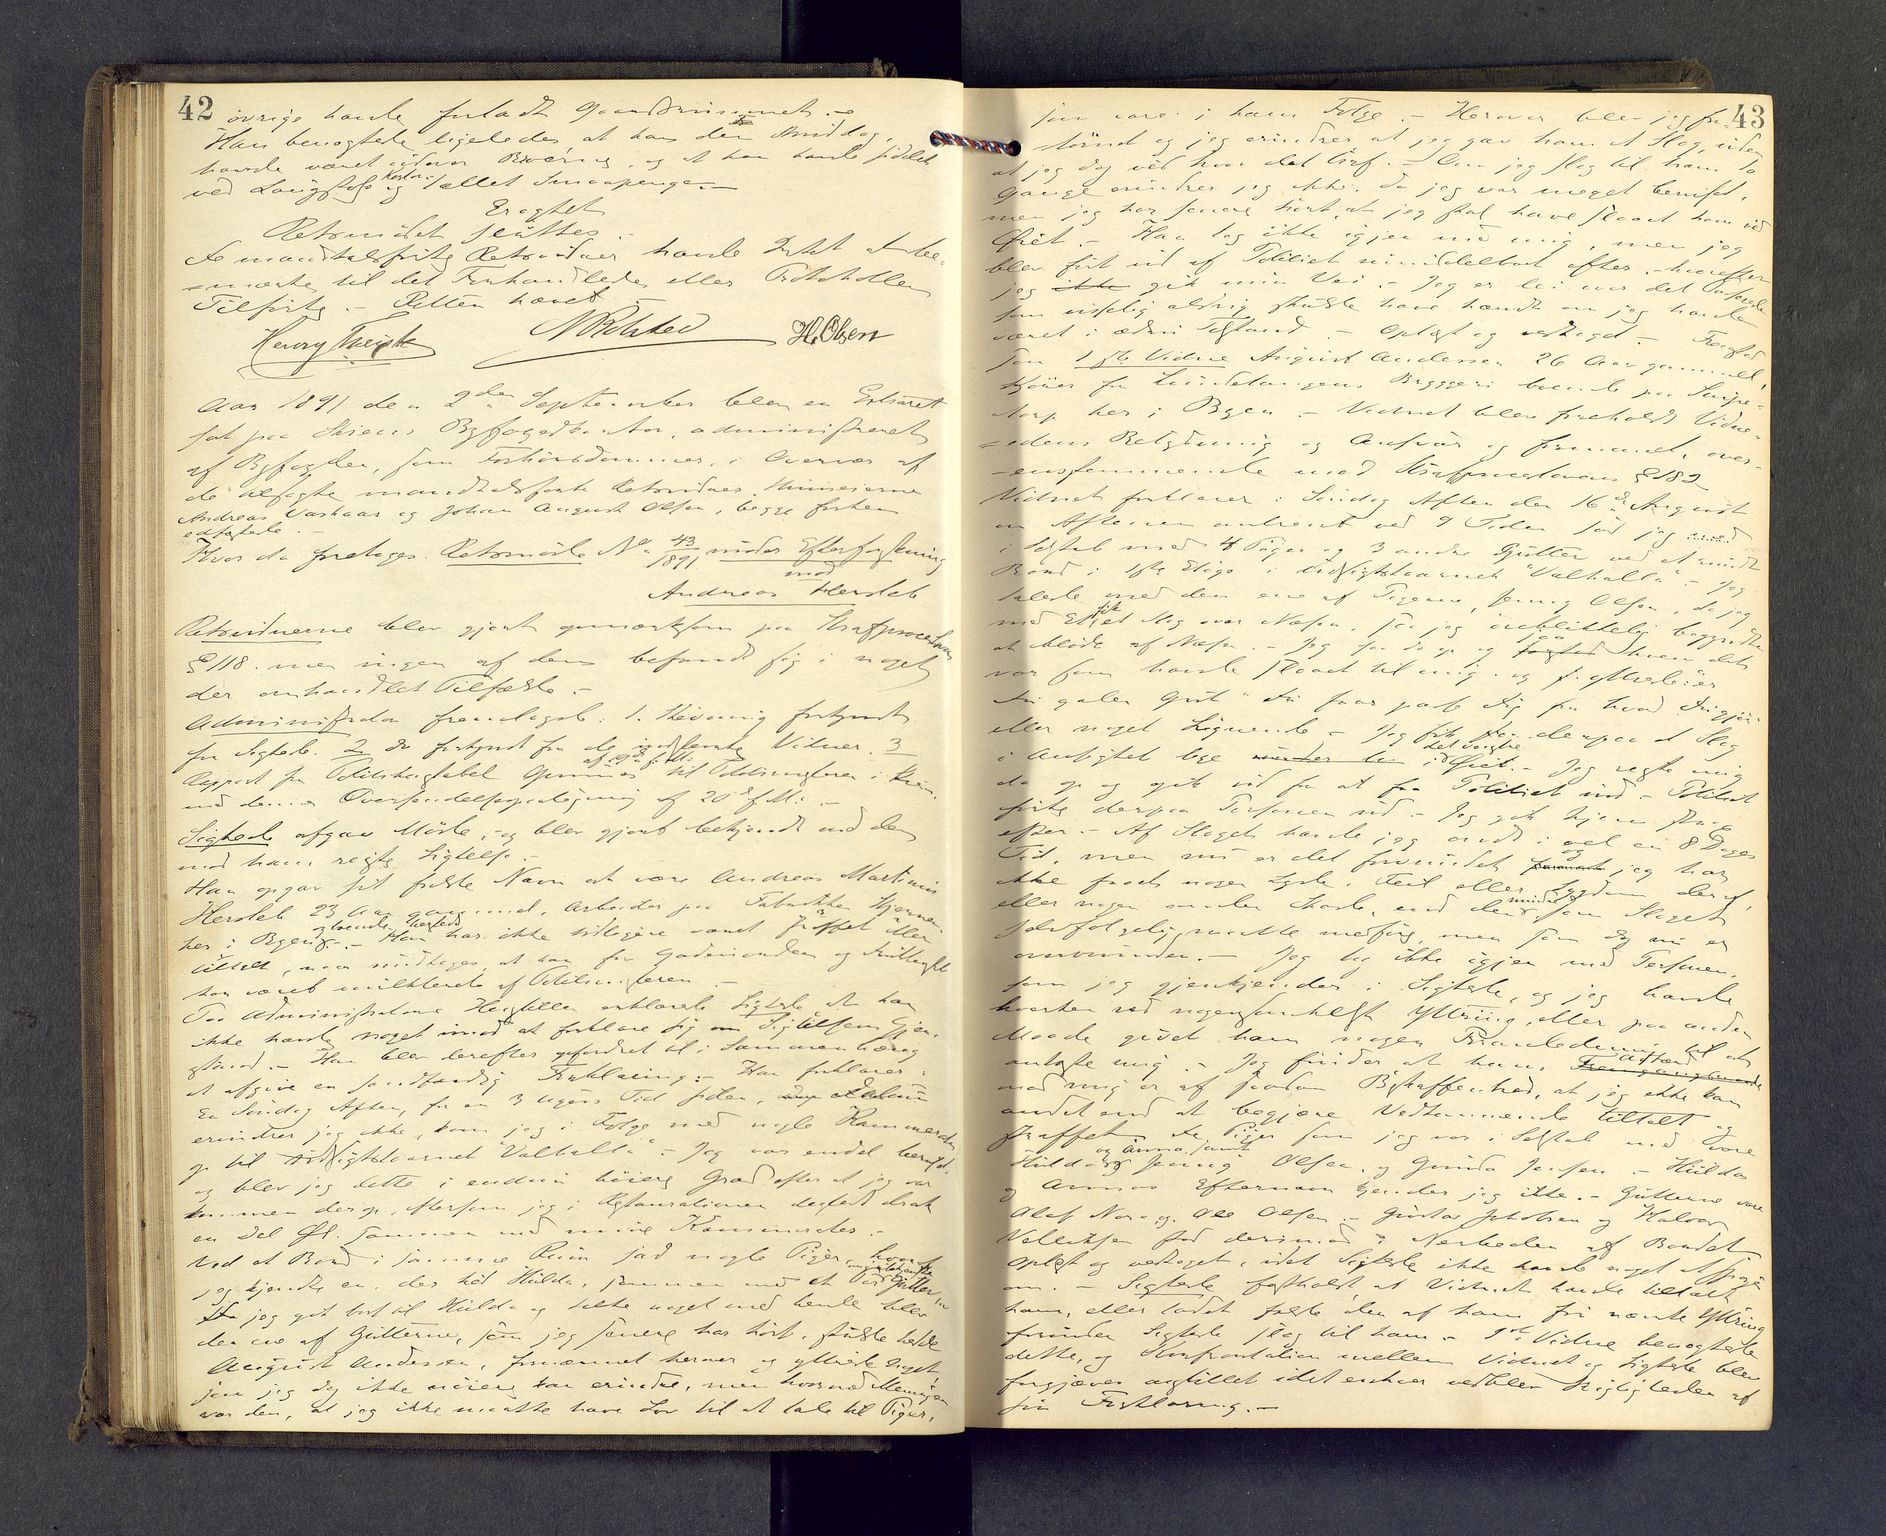 42
øvrige havde forladt
Han benegtede ligeledes at han den Middag
havde været og at han havde siddet
ved og tællet Smaapenge. –
Eragtet
Retsmødet sluttes. –
De mandtalsførte Retsvidner havde Intet at be-
-mærke til det Forhandlede eller Protokollens
Tilførte. – Retten hævet
H. Olsen
Aar 1891 den 2den September blev en Extraret
sat paa Skiens Byfogedkontor, administreret
af Byfogden, som Forhørsdommer, i Overvær af
de tilsagte mandtalsførte Retsvidner
Andreas og Johan August Olsen, begge forhen
edfæstede. –
Hvor da foretoges Retsmøde No 43/1891 under Efterforskning
mod
Andreas Hersleb
Retsvidnerne blev gjort opmærksom paa Straffproceslovens
§ 118. men ingen af dem befandt sig i noget
der omhandlet Tilfælde. –
Administrator fremlagde: 1. Stevning forkyndt
for Sigtede. 2 do forkyndt for de indstevnte Vidner. 3
Rapport fra Politikonstabel til Politimesteren i Skien
med dennes Oversendelsespaategning af 20de f. M. –
Sigtede afgav Møde, og blev gjort bekjendt med den
mod ham reiste Sigtelse. –
Han opgav sit fulde Navn at være Andreas Martinius
Hersleb 23 Aar gammel, Arbeider paa Fabrikken
her i Byen og boende hersteds. – Han har ikke tidligere været straffet eller
tiltalt, naar undtages at han for Gadeuorden og Drukkenskab
har været mulkteret af Politimesteren. –
Paa Administrators Henstillen erklærede Sigtede at han
ikke havde noget imod at forklare sig om Sigtelsens Gjen-
stand. – Han blev derefter opfordret til i Sammenhæng
at afgive en sandfærdig Forklaring. – Han forklarer:
En Søndag Aften, for en 3 Ugers Tid siden, Datum
erindrer jeg ikke, kom jeg i Følge med nogle Kammerater
op til Udsigtstaarnet "Valhalla" – Jeg var endel beruset
og blev jeg dette i endnu høiere Grad efter at jeg var
kommen derop, eftersom jeg i Restaurationen dersteds drak
en Del Øl sammen med mine Kammerater. –
Ved et Bord i samme Rum sad nogle Piger, hvoraf
jeg kjendte en der hed Hulda, sammen med et Par Gutter
Da jeg gik bort til Hulda og talte noget med hende blev
den ene af Gutterne, som jeg senere har hørt, skulde hedde
August Andersen, fornærmet herover og yttrede noget,
som jeg dog ikke nøiere kan erindre, men hvorved Meningen
var den, at jeg ikke maatte have Lov til at tale til Piger,
43
som var i hans Følge. – Herover blev jeg for-
tørnet og jeg erindrer at jeg gav ham et Slag, uden
at jeg dog ved hvor det traf. – Om jeg slog til ham to
Gange erindrer jeg ikke, da jeg var meget beruset,
men jeg har senere hørt, at jeg skal have slaaet ham ved
Øiet. – Han tog ikke igjen med mig, men jeg
blev ført ud af Politiet umiddelbart efter, – hvorefter
jeg ikke gik min Vei. – Jeg er lei over det Passerede
som visselig aldrig skulde have hændt om jeg havde
været i ædru Tilstand. – Oplæst og vedtaget. – Fremstod
som 1ste Vidne August Andersen 26 Aar gammel,
Kjører fra Lundetangens Bryggeri boende paa
her i Byen. – Vidnet blev foreholdt Vidne-
-edens Betydning og Ansvar og formanet, over-
-ensstemmende med Straffproceslovens § 182
Vidnet forklarer: Søndag Aften den 16de August
om Aftenen omtrent ved 9 Tiden sad jeg med
i Selskab med 4 Piger og 3 andre Gutter ved et rundt
Bord i 1ste Etage i Udsigtstaarnet "Valhalla" – Jeg
talede med den ene af Pigerne, Jenny Olsen, da jeg
med Et fik et Slag over Næsen, saa jeg øieblikkelig begyndte
at bløde af Næsen. – Jeg saa da op og saa hvem det
var som havde slaaet til mig, og
"Du faar passe Dig for hvad Du gjør"
eller noget Lignende. – Jeg fik derpaa et Slag
i Ansigtet lige under i det venstre Øiet. – Jeg reiste mig
da op og gik ud for at faa Politiet ind – Politiet
førte derpaa Personen ud. – Jeg gik hjem strax
efter. – Af Slaget havde jeg ondt i vel en 8 Dages
Tid, men nu er det forvundet og jeg har
ikke faaet nogen Lyde, Feil eller Sygdom deraf,
eller nogen anden Skade, end den som Slaget
selvfølgelig maatte medføre, men som dog nu er
overvunden. – Jeg tog ikke igjen med Personen,
som jeg gjenkjender i Sigtede, og jeg havde
hverken ved nogensomhelst Yttring, eller paa anden
Maade givet ham nogen Foranledning til at
antaste mig. – Jeg finder at hans Adfærd
mod mig er af saadan Beskaffenhed, at jeg ikke kan
andet end at begjære Vedkommende tiltalt og
straffet. De Piger som jeg var i Selskab med vare
Hulda og Jenny Olsen, og Gunda Jensen. – Hulda
og Annas Efternavn kjender jeg ikke. – Gutterne vare
Olaf og Ole Olsen. – Gustav Jakobsen og Halvor
sad derimod i Nærheden af Bordet
Oplæst og vedtaget, idet Sigtede ikke havde noget at spørge
om. – Sigtede fastholdt at Vidnet havde tiltalt
ham, eller ladet falde den af ham før nævnte Yttring
forinden Sigtede slog til ham. – 1ste Vidne benegtede
dette, og Konfrontation mellem Vidnet og Sigtede blev
forgjæves anstillet idet enhver vedblev Rigtigheden af
sin Forklaring. –